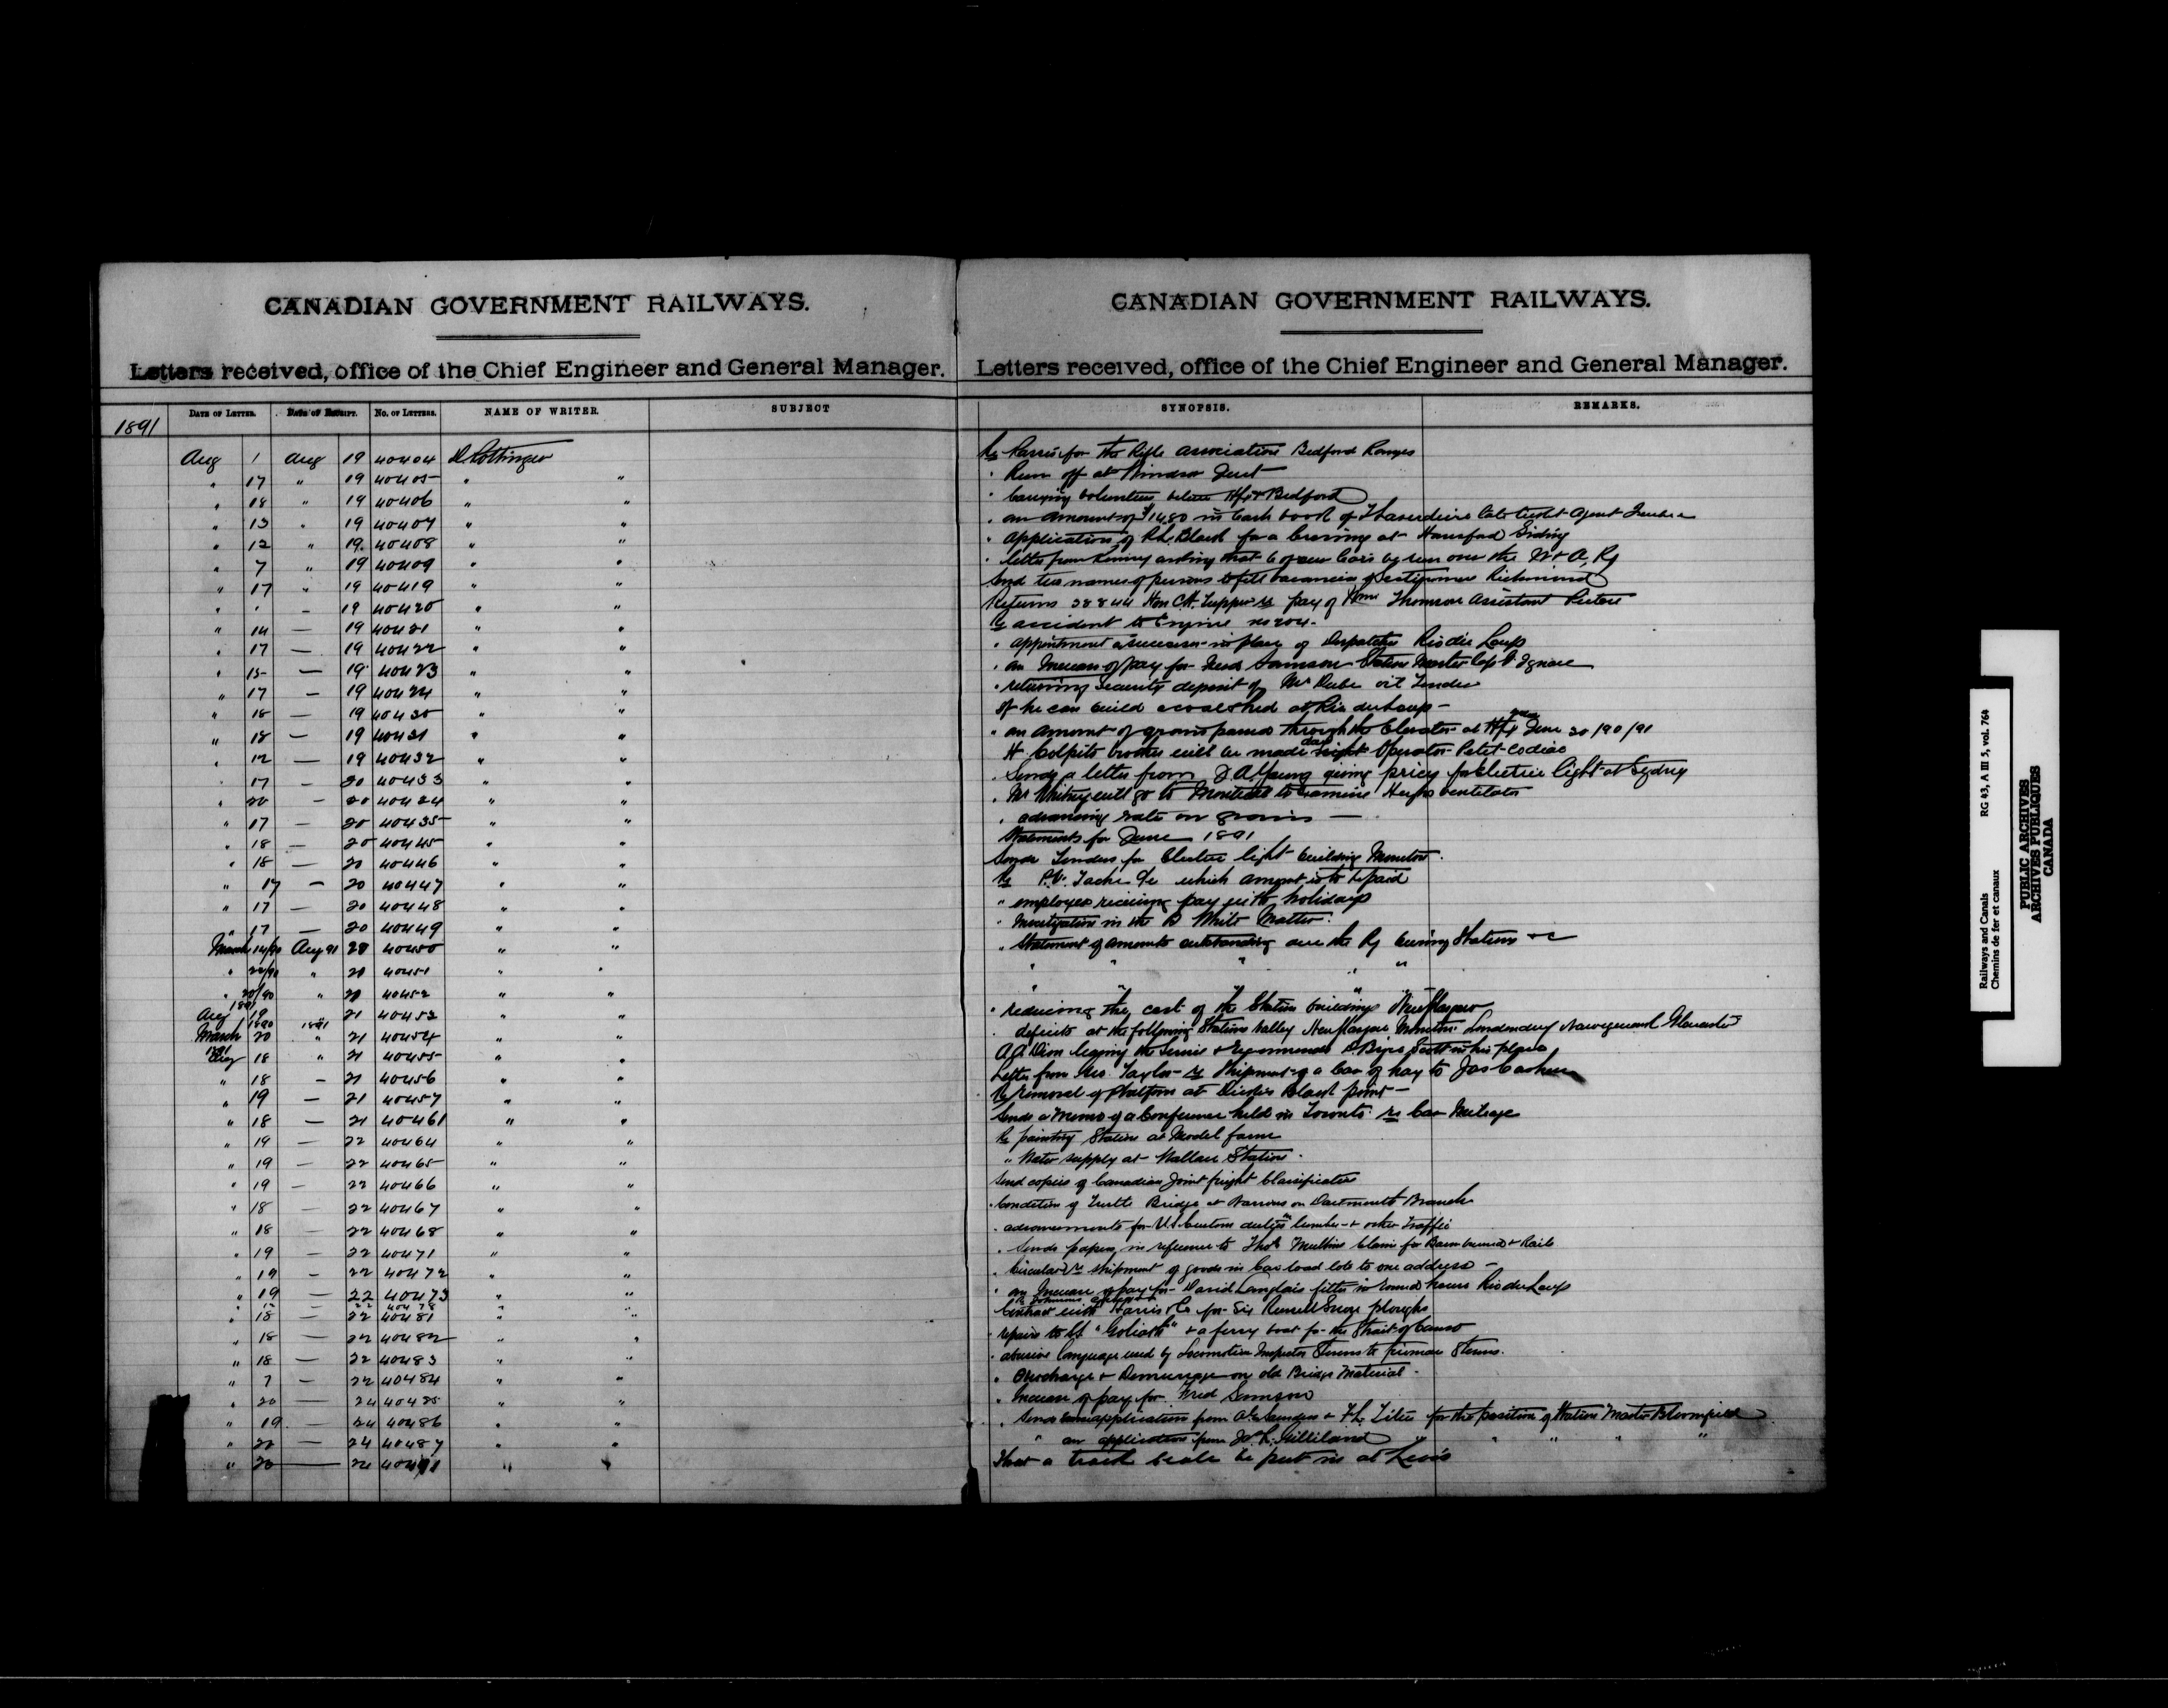 CANADIAN GOVERNMENT RAILWAYS.
Letters received, office of the Chief Engineer and General Manager.
DATE OF LETTER. DATE OF RECEIPT. No. OF LETTERS. NAME OF WRITER. SUBJECT
1891
CANADIAN GOVERNMENT RAILWAYS.
Letters received, office of the Chief Engineer and General Manager.
SYNOPSIS. REMARKS.
Aug 1 Aug 19 40404 D. Pottinger Re for the Rifle association Bedford Ranges
" 17 " 19 40405 " " " Run off at Windsor Junct
" 18 " 19 40406 " " " Carrying volunteers between Hfx & Bedford
" 13 " 19 40407 " " " an amount of $14.80 in Cash book of late ticket agent
" 12 " 19 40408 " " " application of Black for a Crossing at Hansford Siding
" 7 " 19 40409 " " " letter from asking that 6 of our Cars be run over the W & A, Ry
" 17 " 19 40419 " " Send two names of persons to fill vacancies of Richmond
" " - 19 40420 " " Returns 38844 Hon C.H. Tupper re pay of Thomson assistant
" 14 - 19 40421 " " Re accident to Engine no 204.
" 17 - 19 40422 " " " appointment a successor in place of Despatcher Riv du Loup
" 15 - 19 40423 " " " an Increase of pay for Samson Station Master Cap St Ignace
" 17 - 19 40424 " " " returning Security deposit of Mr Dube oil Tender
" 18 - 19 40430 " " If he can build a coalshed at Riv du Loup -
" 18 - 19 40431 " " " an amount of grain passed through the Elevator at Hfx June 30/90/91
" 12 - 19 40432 " " H. Colpitts brother will be made day Operator Petit-codiac
" 17 - 20 40433 " " " Sends a letter from J A Young giving prices for Electric light at Sydney
" 20 - 20 40434 " " " Mr Whitney will go to Montreal to Examine ventilator
" 17 - 20 40435 " " " advancing rate on grain -
" 18 - 20 40445 " " Statements for June 1891
" 18 - 20 40446 " " Sends Tenders for Electric light building Moncton.
" 17 - 20 40447 " " Re P.V. Tache a/c which amount is to be paid
" 17 - 20 40448 " " " employees receiving pay with holidays
" 17 - 20 40449 " " " Investigation in the White Matter.
March 14/90 Aug 91 20 40450 " " " Statement of amounts outstanding over the Ry owing Stations &c
" 22/90 " 20 40451 " " " " " "
" 20/90 " 20 40452 " " " " " "
Aug 1891 19 " 21 40453 " " " reducing the cost of the Station buildings New Glasgow
March 1890 20 1891 " 21 40454 " " " deficits at the following Stations Valley New Glasgow Moncton Londonderry Gloucester
Aug 1891 18 " 21 40455 " " A.A. Dion leaving the Service & recommends Scott in his place
" 18 - 21 40456 " " Letter from Taylor re Shipment of a Car of hay to Jas
" 19 - 21 40457 " " Re removal of Platform at Black point -
" 18 - 21 40461 " " Sends a Memo of a Conference held in Toronto re Car Mileage
" 19 - 22 40464 " " Re painting Station at Model farm
" 19 - 22 40465 " " " Water supply at Wallace Station.
" 19 - 22 40466 " " Send copies of Canadian Joint freight Classification
" 18 - 22 40467 " " " Condition of Trestle Bridge at Narrows on Dartmouth Branch
" 18 - 22 40468 " " " advancements for U.S. Customs duties on lumber & other traffic
" 19 - 22 40471 " " " Sends papers in reference to Thos Mullins claim for Barn burned & Rails
" 19 - 22 40472 " " " Circular re shipment of goods in Car load lots to one address -
" 19 - 22 40473 " " " an Increase of pay for David Langlais fitter in round house Riv du Loup
" - 22 40478 " "
" 18 - 22 40481 " " Contract with Harris & Co for Six Russell Snow ploughs
" 18 - 22 40482 " " " repairs to St. "Goliath" & a ferry boat for the Strait of Canso
" 18 - 22 40483 " " " abusive language used by Locomotive Inspector to fireman
" 7 - 22 40484 " " " Overcharge & Demurrage on old Bridge Material -
" 20 - 24 40485 " " " Increase of pay for Fred Samson
" 19 - 24 40486 " " " Sends applications from Saunders & F.L. for the position of Station Master Bloomfield
" 22 - 24 40487 " " " an application from Gilliland " " " "
" 20 - 24 40491 " " That a track Scale be put in at Levis
Railways and Canals RG 43, A III 5, vol. 764
Chemins de fer et canaux
PUBLIC ARCHIVES
ARCHIVES PUBLIQUES
CANADA